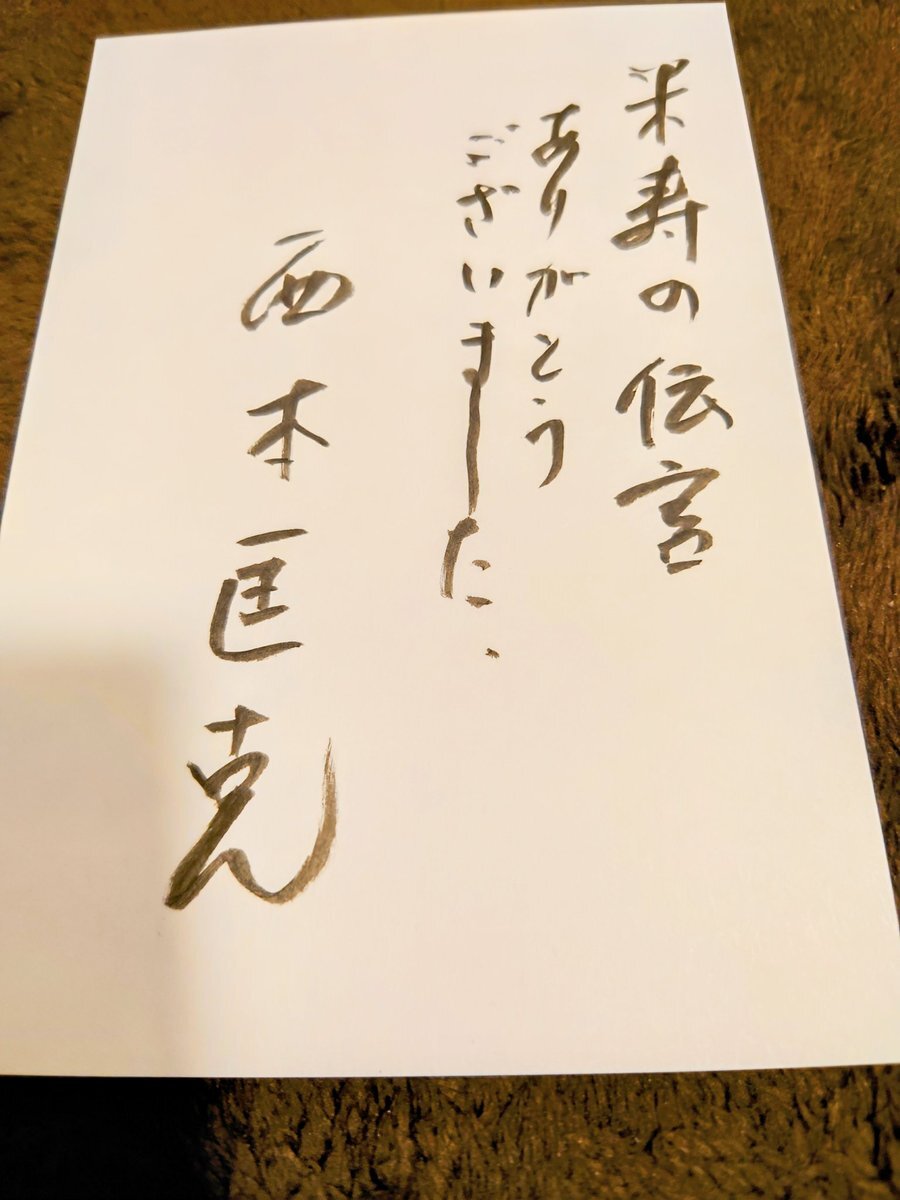 米寿の伝言
ありがとう
ございました.
西本匡克